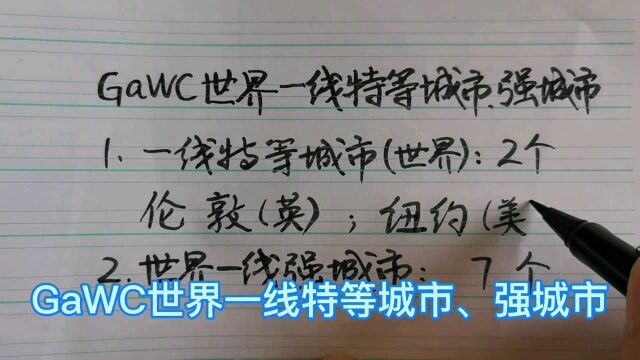 GaWC世界一线特等城市、强城市
1. 一线特等城市(世界)：2个
伦敦(英)；纽约(美
2. 世界一线强城市： 7个
GaWC世界一线特等城市、强城市